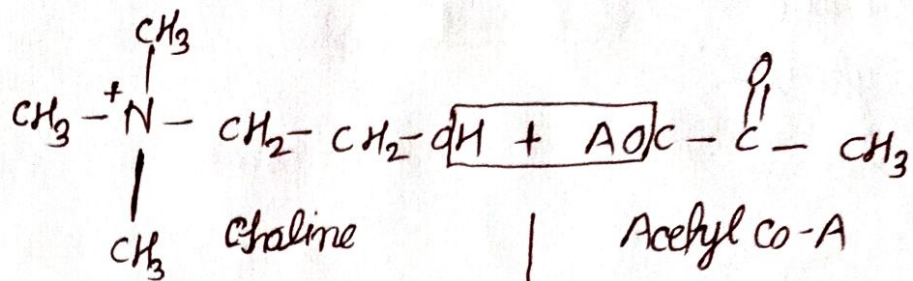 CH3
CH3 - +N - CH2 - CH2 - OH + AOC - C - CH3
O
CH3
Choline
Acetyl Co-A